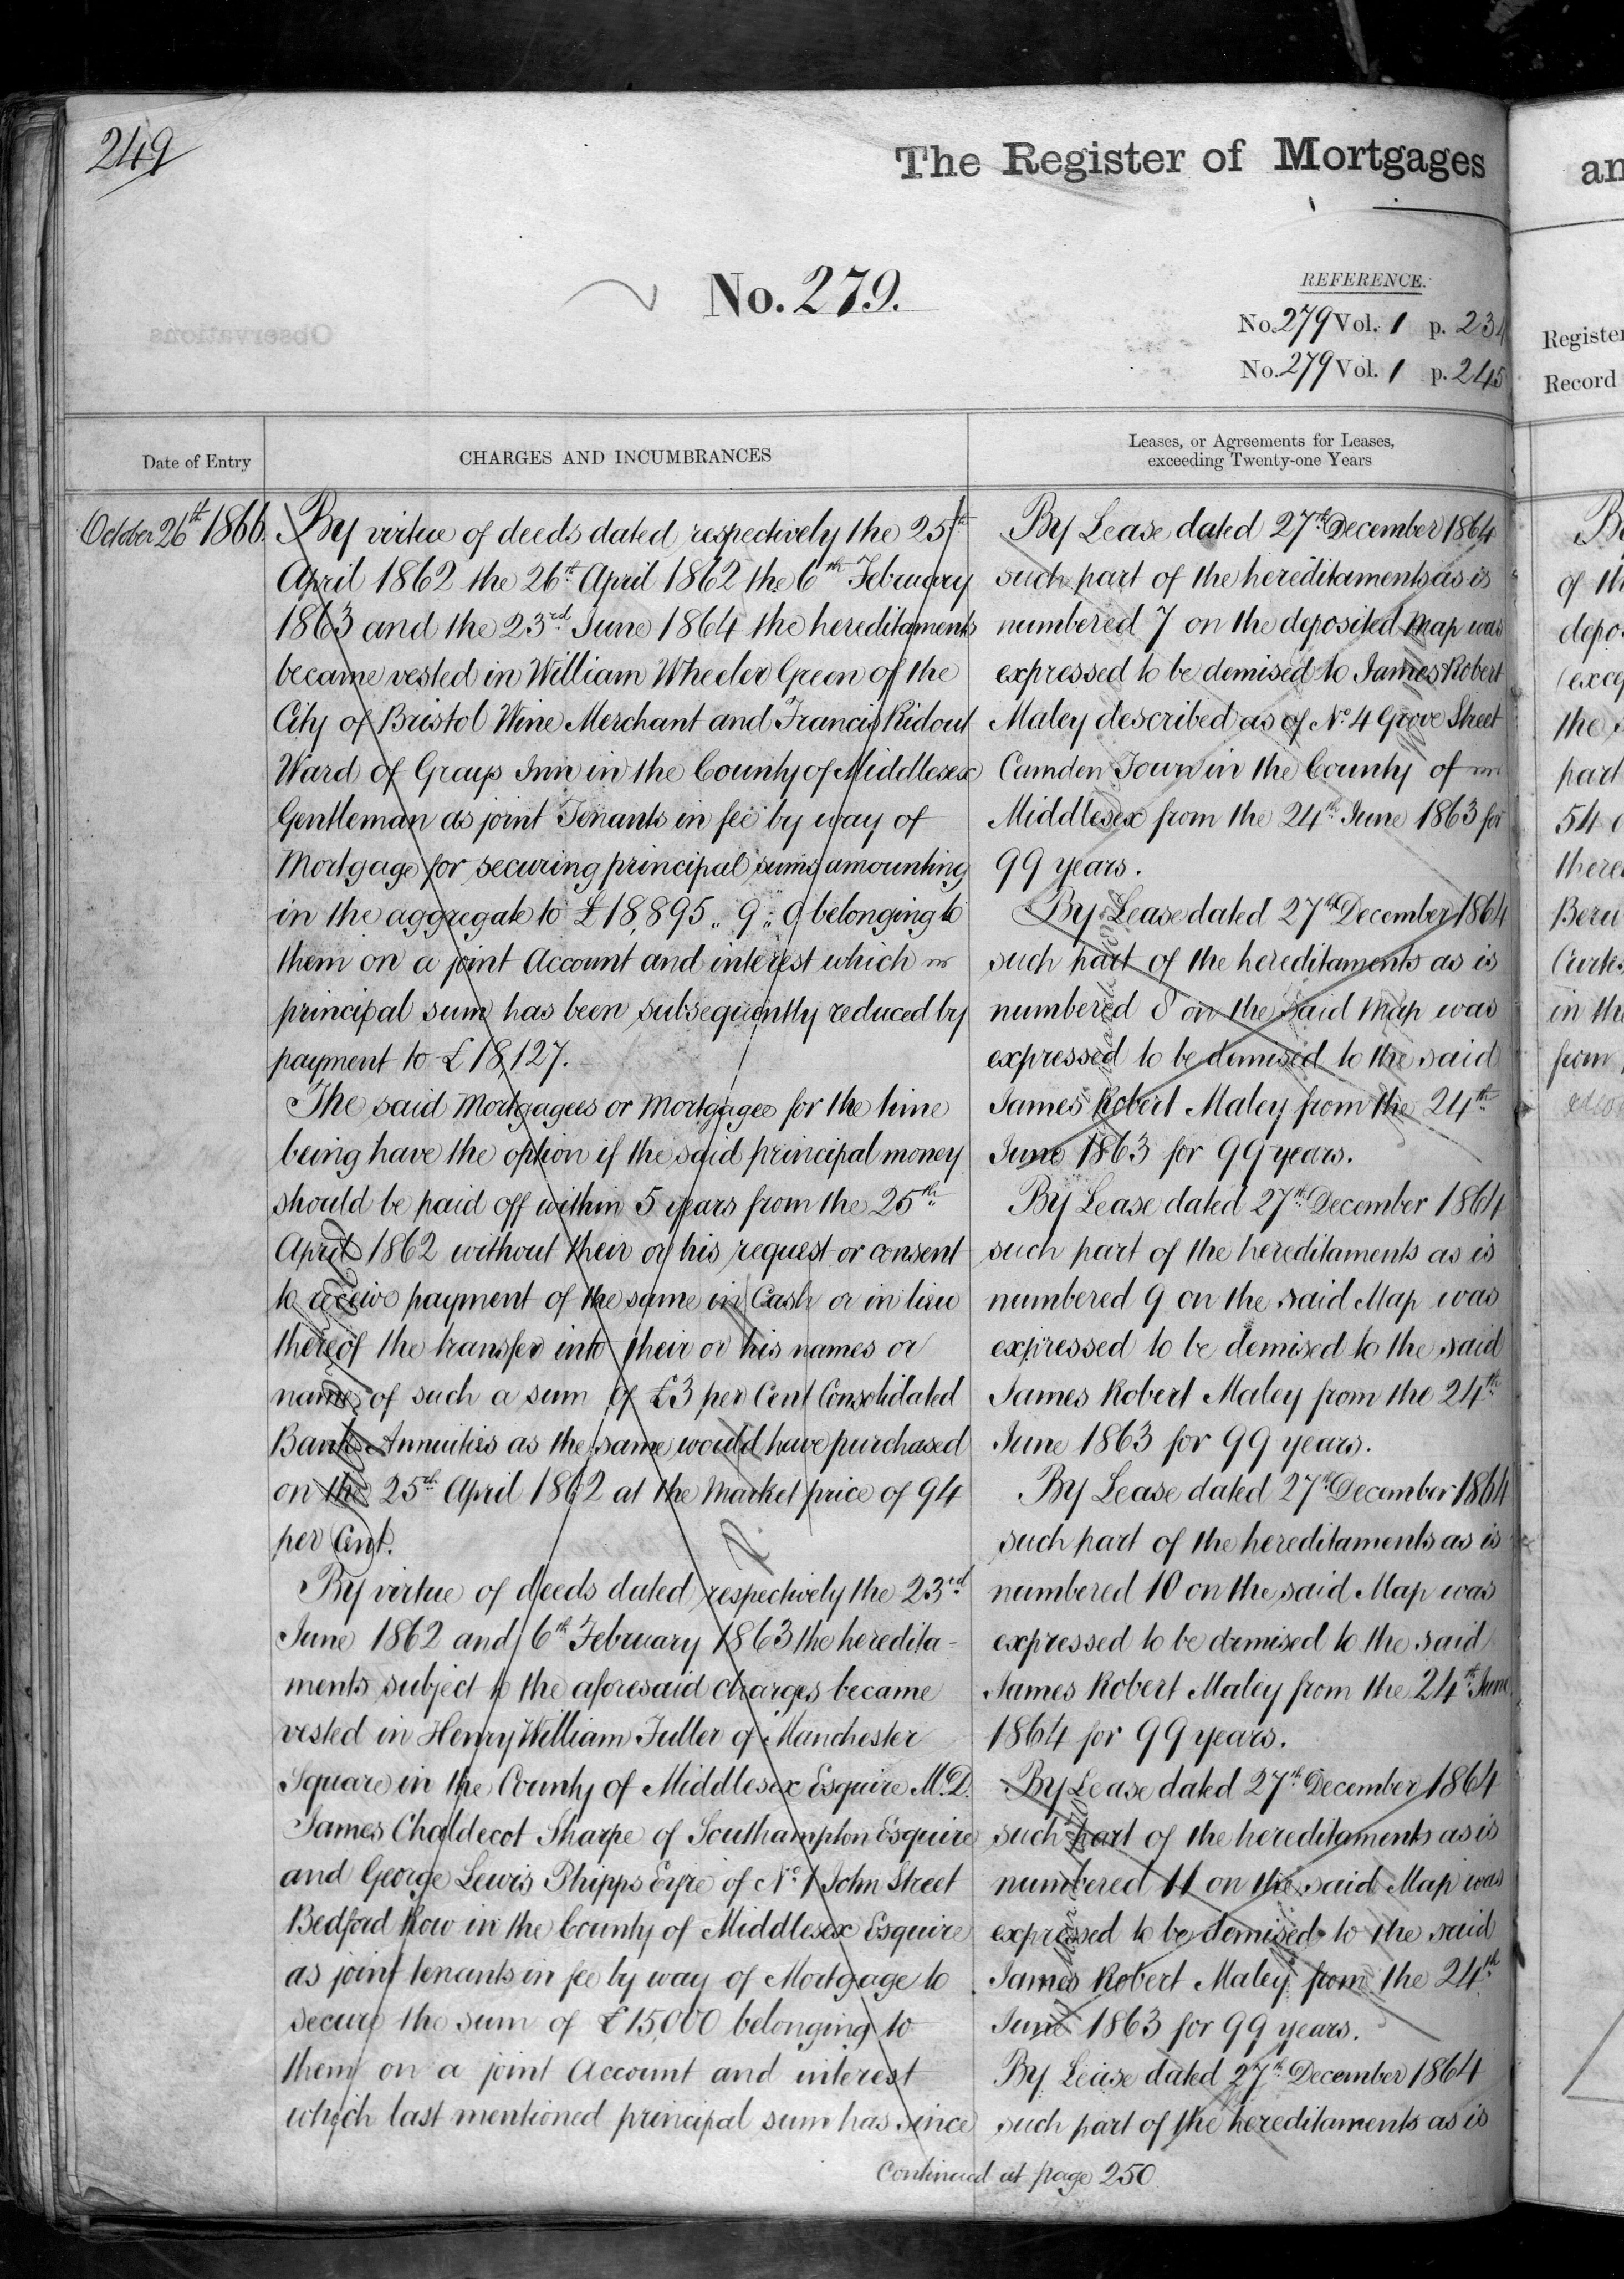 249
The Register of Mortgages
No. 279.
REFERENCE.
No. 279 Vol. 1 p. 234
No. 279 Vol. 1 p. 245
Date of Entry
CHARGES AND INCUMBRANCES
Leases, or Agreements for Leases,
exceeding Twenty-one Years
October 26th 1866.
By virtue of deeds dated respectively the 25th
April 1862 the 26th April 1862 the 6th February
1863 and the 23rd June 1864 the hereditaments
became vested in William Wheeler Green of the
City of Bristol Wine Merchant and Francis Ridout
Ward of Grays Inn in the County of Middlesex
Gentleman as joint Tenants in fee by way of
Mortgage for securing principal sums amounting
in the aggregate to £18,895 " 9 " 0 belonging to
them on a joint Account and interest which
principal sum has been subsequently reduced by
payment to £18,127.
The said Mortgagees or Mortgagee for the time
being have the option if the said principal money
should be paid off within 5 years from the 25th
April 1862 without their or his request or consent
to receive payment of the same in Cash or in lieu
thereof the transfer into their or his names or
name of such a sum of £3 per Cent Consolidated
Bank Annuities as the same would have purchased
on the 25th April 1862 at the Market price of 94
per Cent.
By virtue of deeds dated respectively the 23rd
June 1862 and 6th February 1863 the heredita-
ments subject to the aforesaid charges became
vested in Henry William Fuller of Manchester
Square in the County of Middlesex Esquire M.D.
James Chaldecot Sharpe of Southampton Esquire
and George Lewis Phipps Eyre of No. 1 John Street
Bedford Row in the County of Middlesex Esquire
as joint tenants in fee by way of Mortgage to
secure the sum of £15,000 belonging to
them on a joint Account and interest
which last mentioned principal sum has since
By Lease dated 27th December 1864
such part of the hereditaments as is
numbered 7 on the deposited Map was
expressed to be demised to James Robert
Maley described as of No. 4 Grove Street
Camden Town in the County of
Middlesex from the 24th June 1863 for
99 years.
By Lease dated 27th December 1864
such part of the hereditaments as is
numbered 8 on the said Map was
expressed to be demised to the said
James Robert Maley from the 24th
June 1863 for 99 years.
By Lease dated 27th December 1864
such part of the hereditaments as is
numbered 9 on the said Map was
expressed to be demised to the said
James Robert Maley from the 24th
June 1863 for 99 years.
By Lease dated 27th December 1864
such part of the hereditaments as is
numbered 10 on the said Map was
expressed to be demised to the said
James Robert Maley from the 24th June
1864 for 99 years.
By Lease dated 27th December 1864
such part of the hereditaments as is
numbered 11 on the said Map was
expressed to be demised to the said
James Robert Maley from the 24th
June 1863 for 99 years.
By Lease dated 27th December 1864
such part of the hereditaments as is
Continued at page 250
an
Register
Record
of th
depo
(exce
the
part
54
there
in the
from